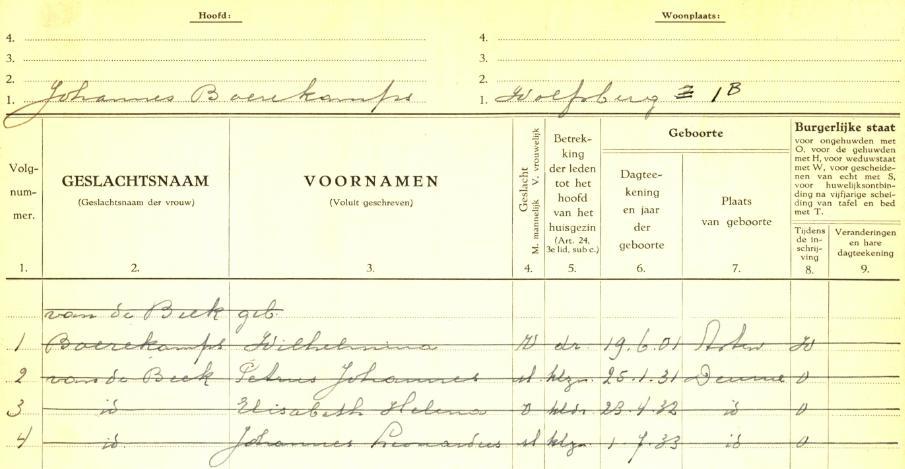 Hoofd: Woonplaats:
4. 4.
3. 3.
2. 2.
1. Johannes Boerekamps 1. Wolfsberg 1B
Volg-
num-
mer.
1.
GESLACHTSNAAM
(Geslachtsnaam der vrouw)
2.
VOORNAMEN
(Voluit geschreven)
3.
Geslacht
M. mannelijk V. vrouwelijk
4.
Betrek-
king
der leden
tot het
hoofd
van het
huisgezin
(Art. 24,
3e lid, sub c.)
5.
Geboorte
Dagtee-
kening
en jaar
der
geboorte
6.
Plaats
van geboorte
7.
Burgerlijke staat
voor ongehuwden met
O, voor de gehuwden
met H, voor weduwstaat
met W, voor gescheide-
nen van echt met S,
voor huwelijksontbin-
ding na vijfjarige schei-
ding van tafel en bed
met T.
Tijdens
de in-
schrij-
ving
8.
Veranderingen
en hare
dagteekening
9.
van de Beek geb.
1 Boerekamps Wilhelmina dr. 19.6.01 Asten W
2 van de Beek Petrus Johannes klzn. 25.1.31 Deurne O
3 id Elisabeth Helena kldr. 23.4.32 id O
4 id. Johannes Leonardus klzn. 1.7.33 id O